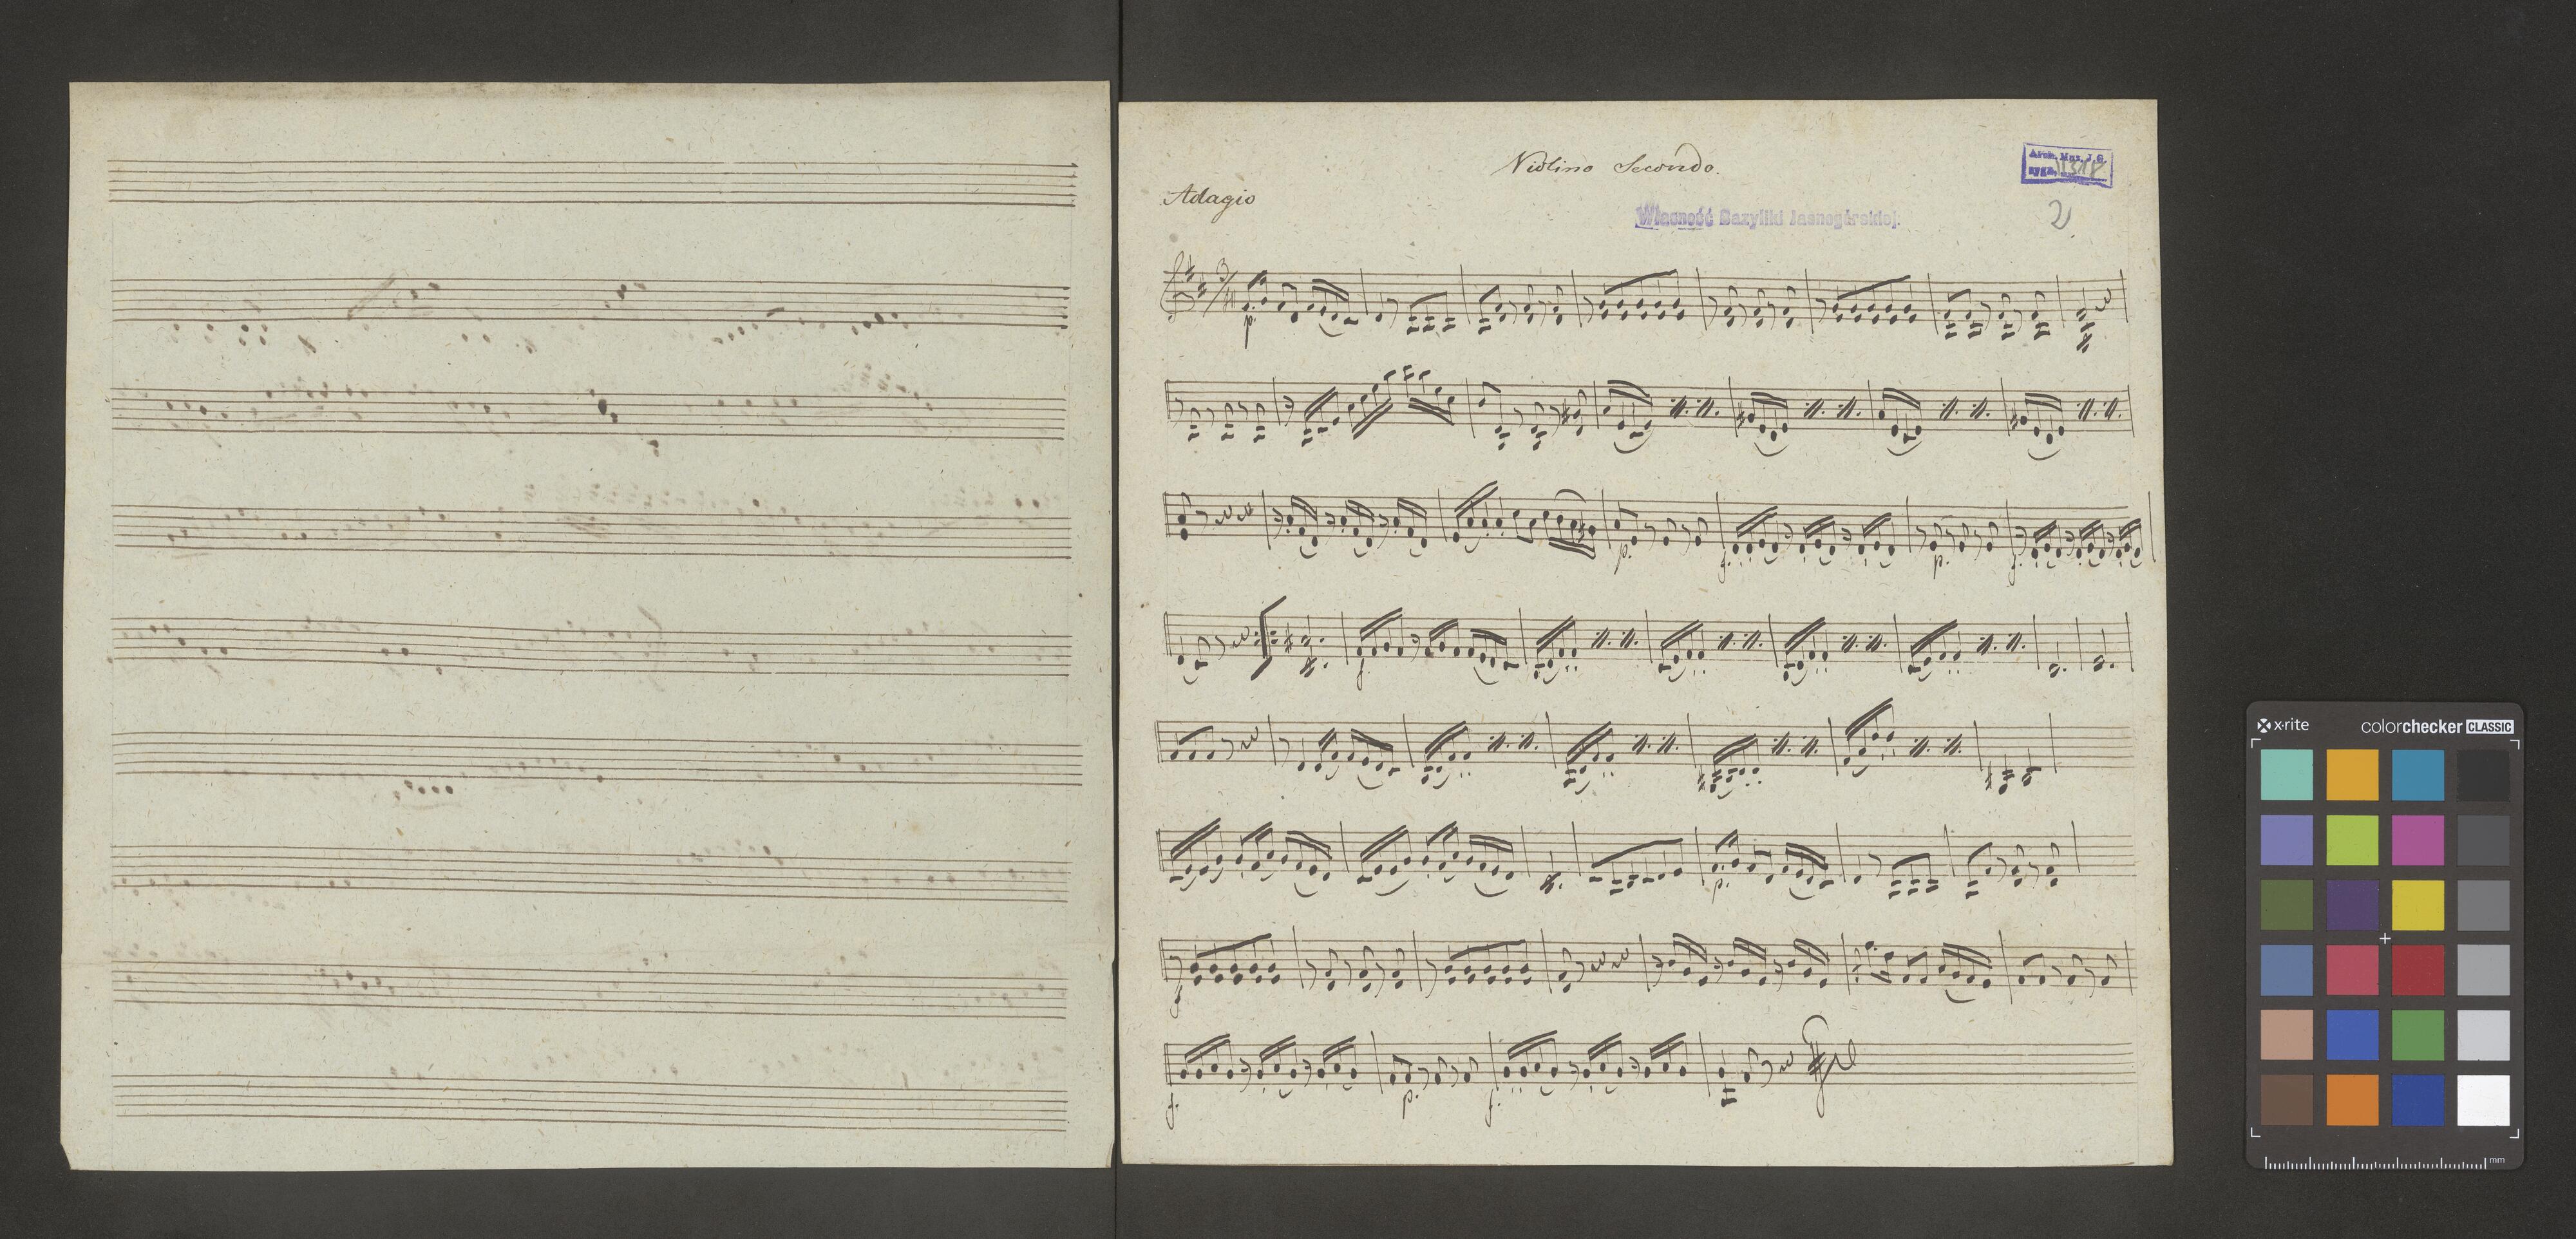 Violino Secondo.
Adagio
Arch. Muz. J. G.
sygn.
Własność Bazyliki Jasnogórskiej.
2
p.
p.
f.
p.
f.
f
p.
f
f.
p.
f.
x-rite
colorchecker CLASSIC
mm